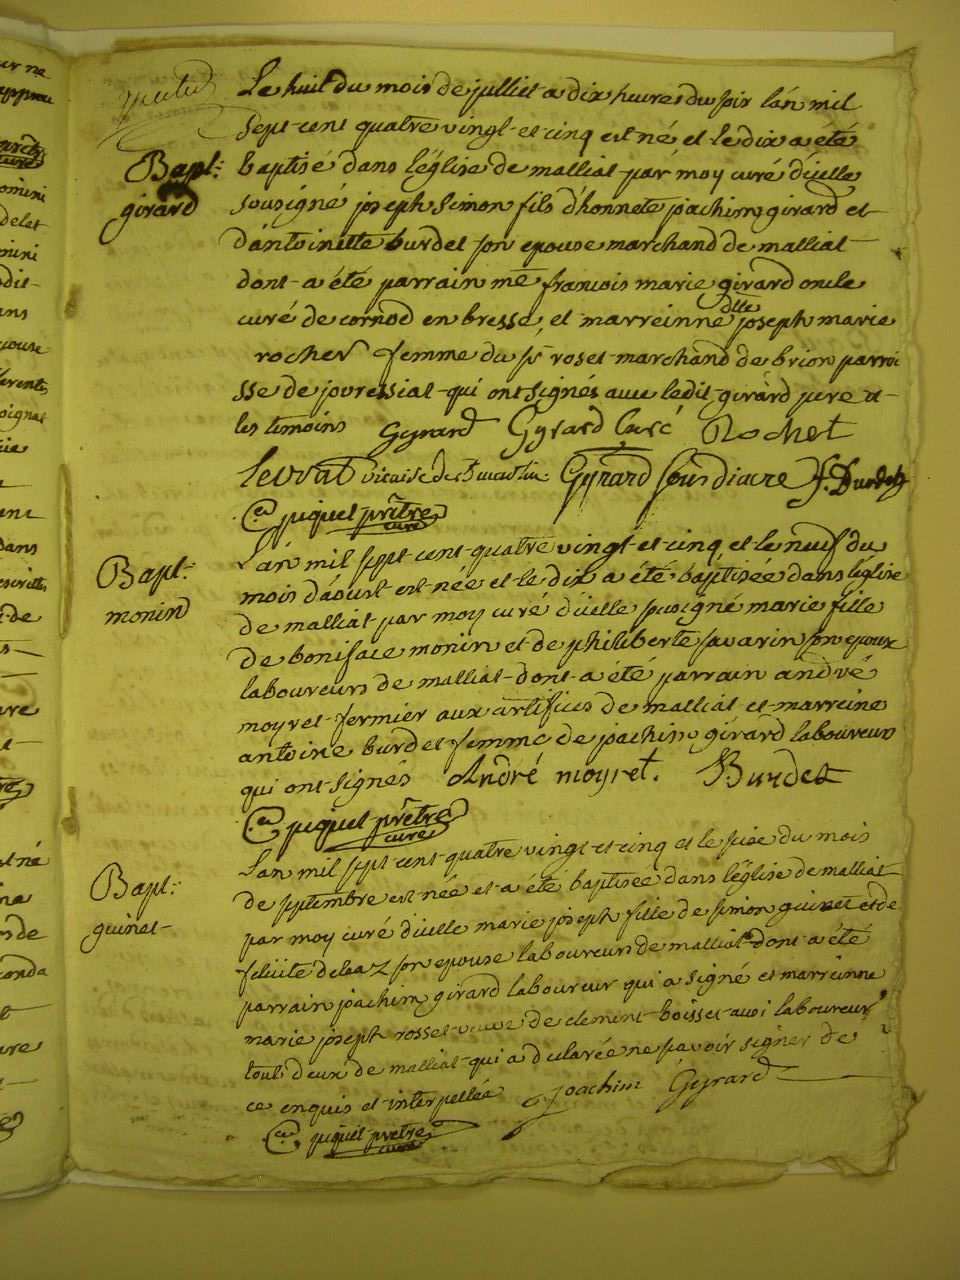 Le huit du mois de julliet a dix heures du soir l'an mil
sept cent quatre vingt et cinq est né et le dix a été
Bapt:
baptisé dans l'église de malliat par moy curé d'icelle
girard
sousigné joseph Simon fils d'honnete joachim girard et
d'antoinette burdet son epouse marchand de malliat
dont a été parrain me francois marie girard oncle
curé de cornod en bresse, et marreinne dlle joseph marie
rochet femme du sr roset marchand de brion parroi
sse de jouressiat qui ont signés avec ledit girard pere et
les temoins Gyrard Gyrard Curé Rochet
vicaire de st martin Gyrard Sousdiacre f. Burdet
juquet prêtre
curé
L'an mil sept cent quatre vingt et cinq et le neuf du
Bapt:
mois d'aoust est née et le dix a été baptisée dans l'église
monin
de malliat par moy curé d'icelle sousigné marie fille
de boniface monin et de philiberte savarin son epouse
laboureurs de malliat dont a été parrain andré
moyret fermier aux artifices de malliat et marreine
antoine burdet femme de joachim girard laboureurs
qui ont signés André moyret. Burdet
juquet prêtre
curé
L'an mil sept cent quatre vingt et cinq et le seize du mois
Bapt:
de septembre est née et a été baptisée dans l'église de malliat
guinet
par moy curé d'icelle marie joseph fille de simon guinet et de
felicite delaaz son epouse laboureurs de malliat dont a été
parrain joachim girard laboureur qui a signé et marreinne
marie joseph rosset veuve de clement boisset aussi laboureur
tout deux de malliat qui a declarée ne savoir signer de
ce enquis et interpellée Joachim Gyrard
juquet prêtre
curé